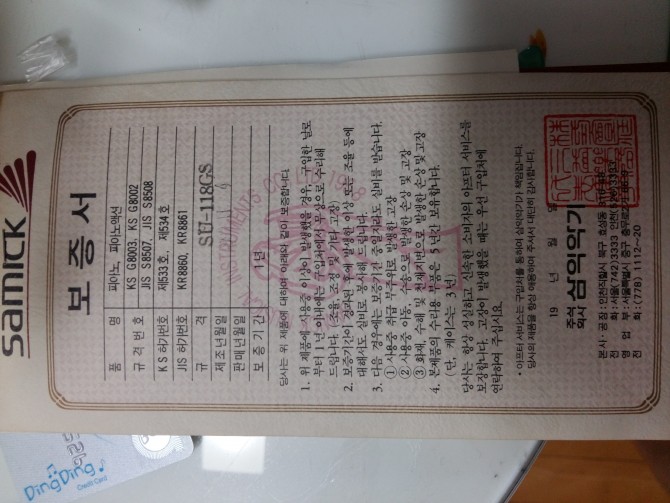 SAMICK
보증서
품 명 피아노, 피아노액션
규격번호 KS G8003, KS G8002
JIS S8507, JIS S8508
KS허가번호 제533호, 제534호
JIS허가번호 KR8860, KR8861
규 격 SU-118GS
제조년월일
판매년월일
보증기간 1년
당사는 위 제품에 대하여 아래와 같이 보증합니다.
1. 위 제품에 사용중 이상이 발생했을 경우, 구입한 날로
부터 1년 이내에는 구입처에서 무상으로 수리해
드립니다. (조율, 조정 및 기타 고장)
2. 보증기간이 경과된 후에 발생한 이상 또는 조율 등에
대해서도 실비로 봉사해 드립니다.
3. 다음 경우에는 보증기간 중일지라도 실비를 받습니다.
① 사용중 취급 부주의로 발생한 고장
② 사용중 이동, 수송으로 발생한 손상 및 고장
③ 화재, 수해 및 천재지변으로 발생한 손상 및 고장
4. 본제품의 수리용 부품은 5년간 보유합니다.
(단, 케이스는 3년)
당사는 항상 성실하고 신속한 소비자의 아프터 서비스를
보장합니다. 고장이 발생했을 때는 우선 구입처에
연락하여 주십시요.
* 아프터 서비스는 구입처를 통하여 삼익악기가 책임집니다.
당사의 제품을 항상 애용하여 주셔서 대단히 감사합니다.
19 년 월 일
주식회사 삼익악기
본사·공장: 인천직할시 북구 효성동
전 화: 서울(742)3333, 인천
영 업 부: 서울특별시 중구 충무로
전 화: (778) 1112~20
DingDing
Credit Card